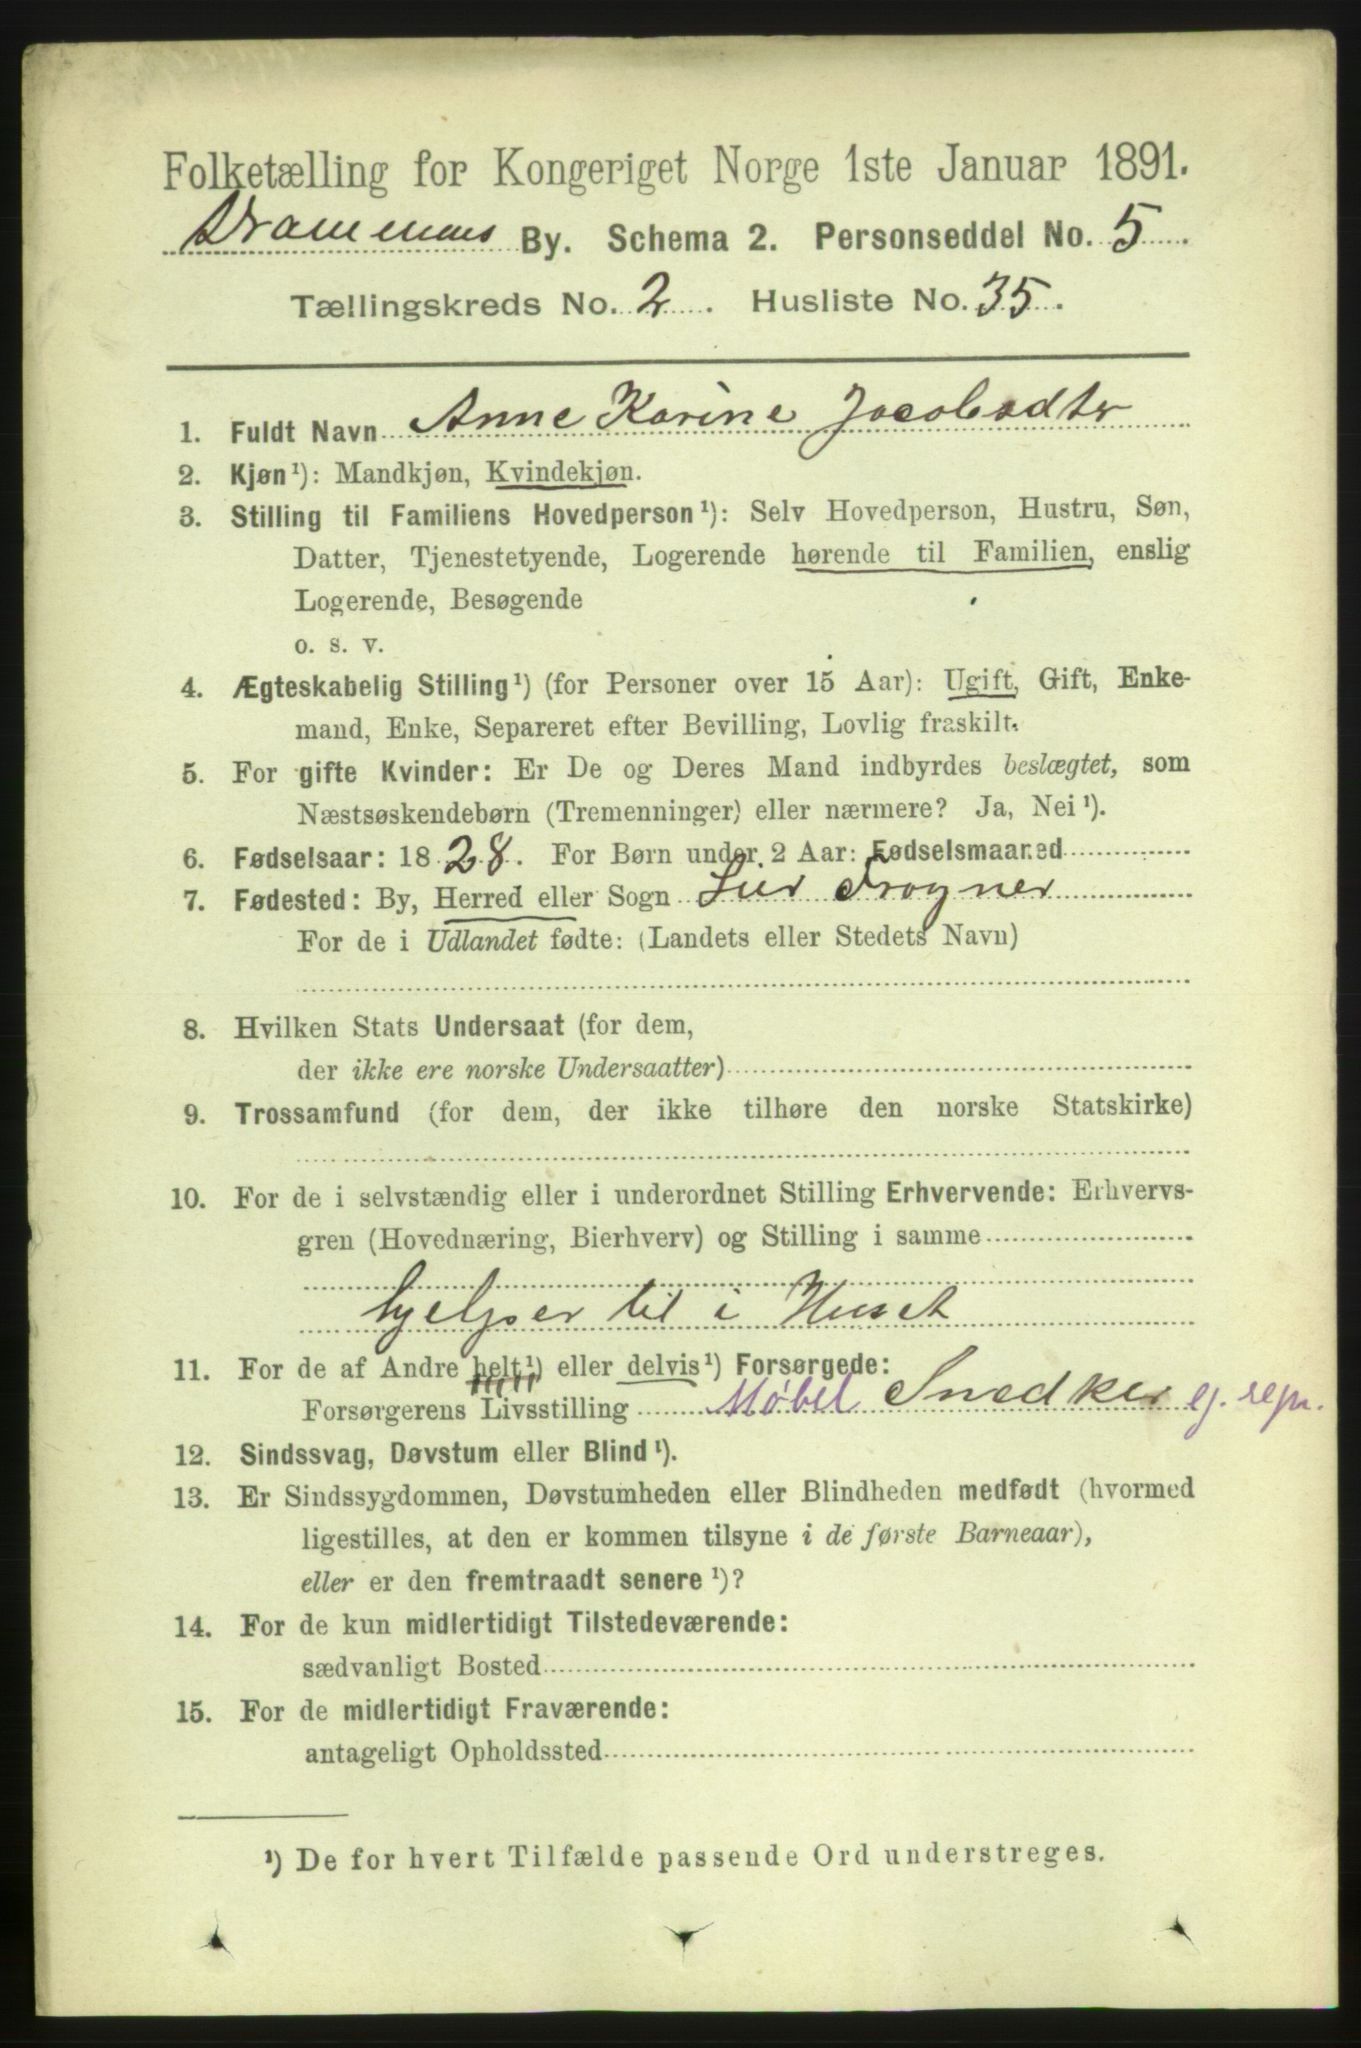 Folketælling for Kongeriget Norge 1ste Januar 1891.
Drammens By. Schema 2. Personseddel No. 5.
Tællingskreds No. 2. Husliste No. 35.
1. Fuldt Navn Anne Karine Jacobsdtr
2. Kjøn¹): Mandkjøn, Kvindekjøn.
3. Stilling til Familiens Hovedperson¹): Selv Hovedperson, Hustru, Søn,
Datter, Tjenestetyende, Logerende hørende til Familien, enslig
Logerende, Besøgende
o. s. v.
4. Ægteskabelig Stilling¹) (for Personer over 15 Aar): Ugift, Gift, Enke-
mand, Enke, Separeret efter Bevilling, Lovlig fraskilt.
5. For gifte Kvinder: Er De og Deres Mand indbyrdes beslægtet, som
Næstsøskendebørn (Tremenninger) eller nærmere? Ja, Nei¹).
6. Fødselsaar: 1828. For Børn under 2 Aar: Fødselsmaaned
7. Fødested: By, Herred eller Sogn Lier Frogner
For de i Udlandet fødte: (Landets eller Stedets Navn)
8. Hvilken Stats Undersaat (for dem,
der ikke ere norske Undersaatter)
9. Trossamfund (for dem, der ikke tilhøre den norske Statskirke)
10. For de i selvstændig eller i underordnet Stilling Erhvervende: Erhvervs-
gren (Hovednæring, Bierhverv) og Stilling i samme
hjelper til i Huset
11. For de af Andre helt¹) eller delvis¹) Forsørgede:
Forsørgerens Livsstilling Møbel Snedker ej. repr.
12. Sindssvag, Døvstum eller Blind¹).
13. Er Sindssygdommen, Døvstumheden eller Blindheden medfødt (hvormed
ligestilles, at den er kommen tilsyne i de første Barneaar),
eller er den fremtraadt senere¹)?
14. For de kun midlertidigt Tilstedeværende:
sædvanligt Bosted
15. For de midlertidigt Fraværende:
antageligt Opholdssted
¹) De for hvert Tilfælde passende Ord understreges.